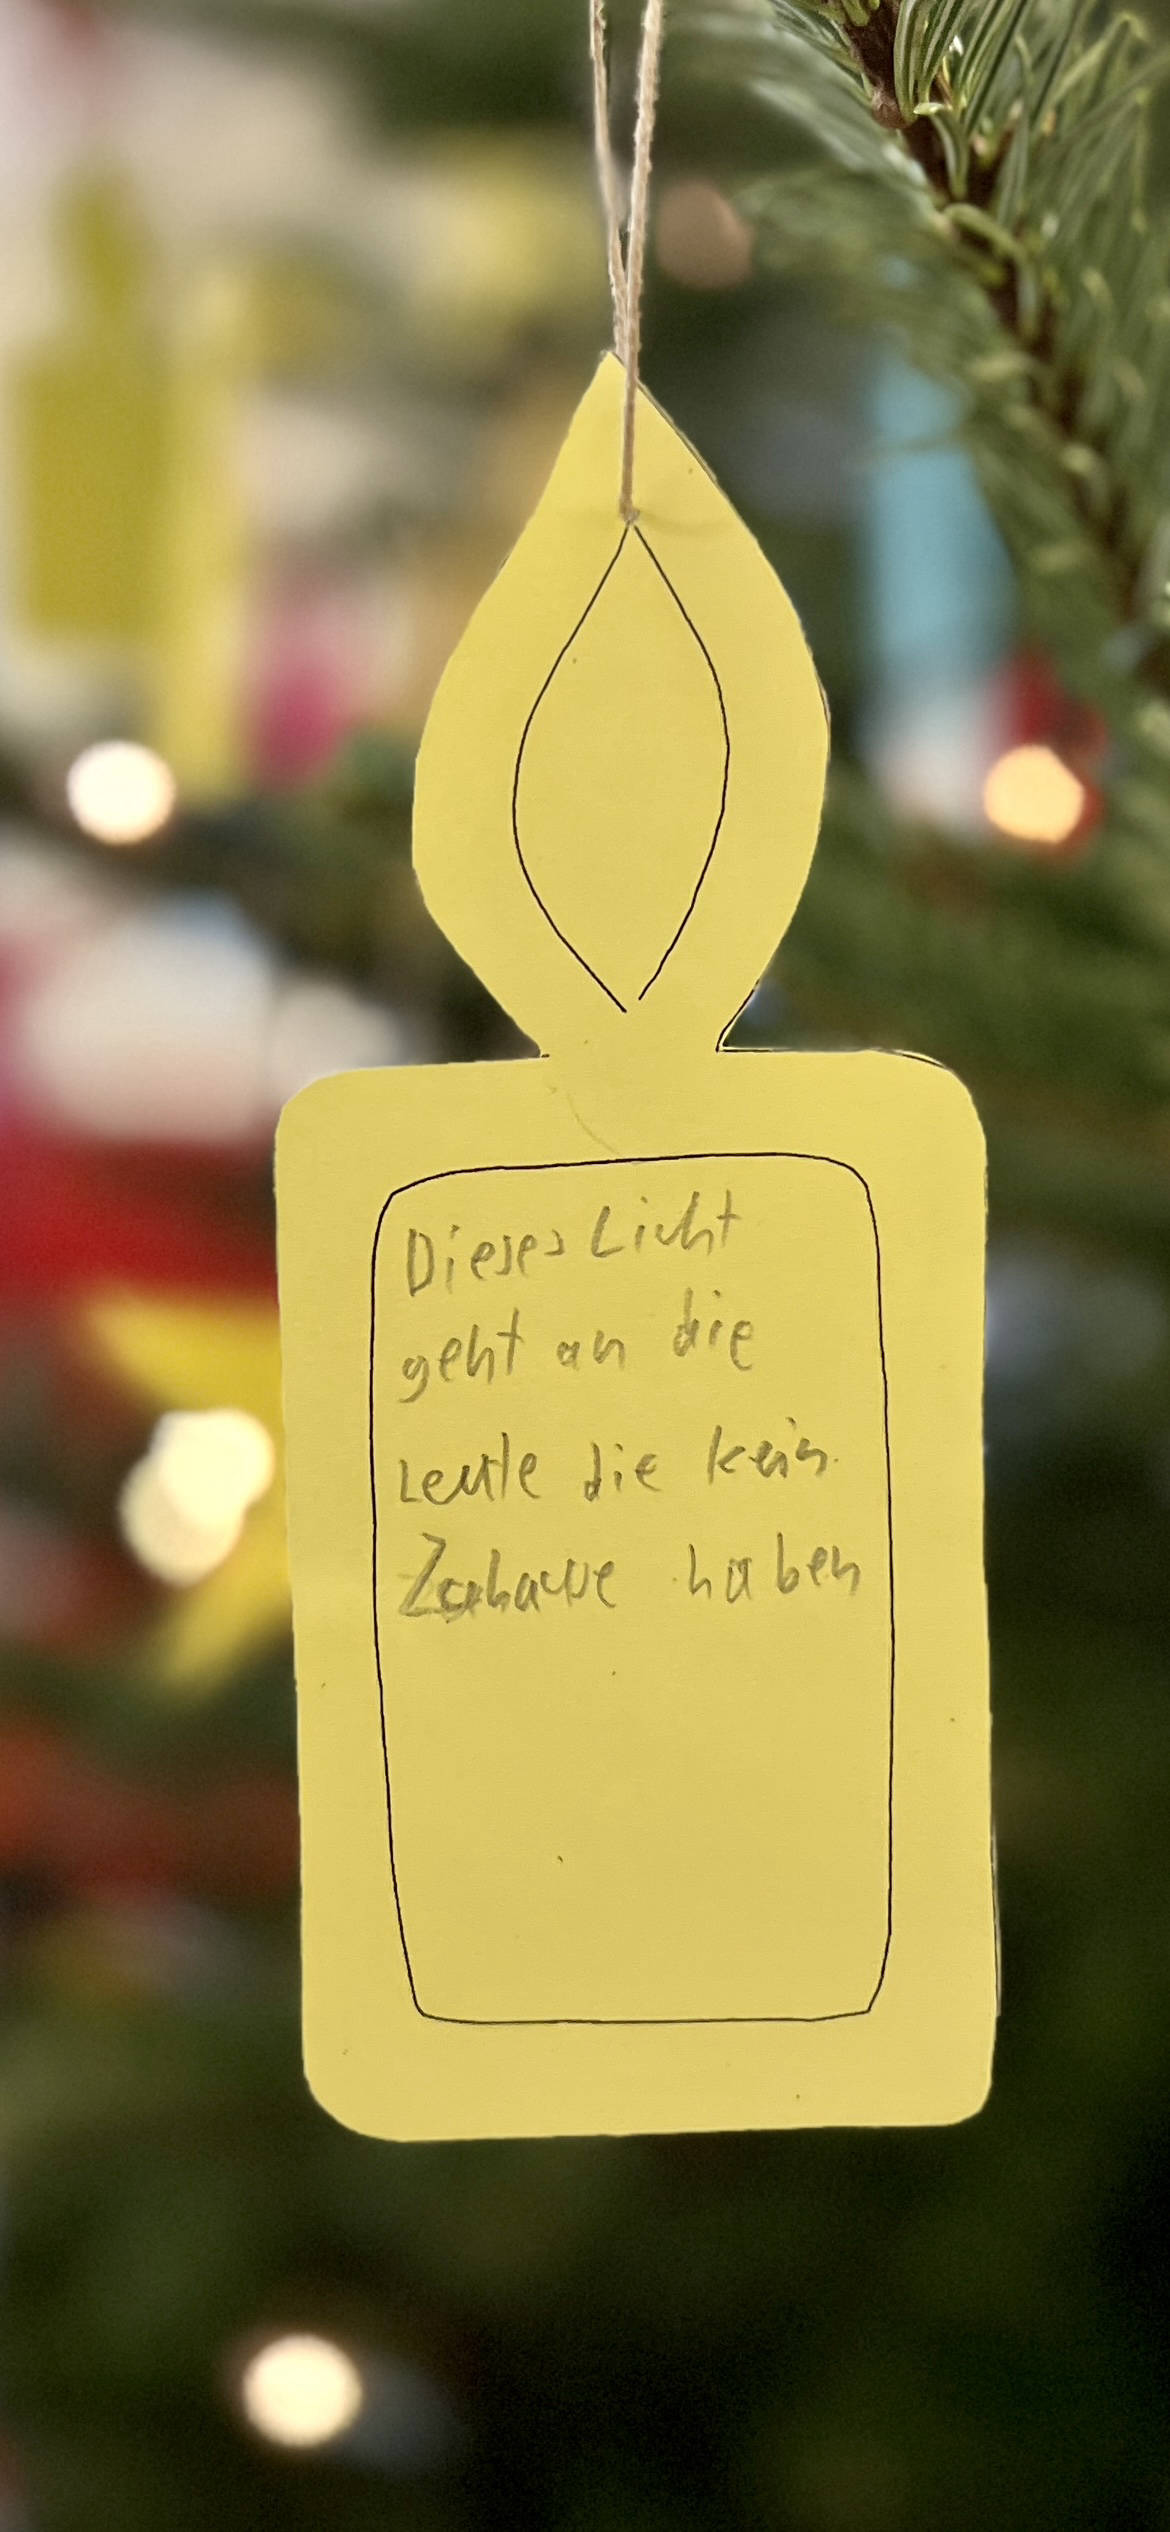 Dieses Licht
geht an die
Leute die kein
Zuhause haben